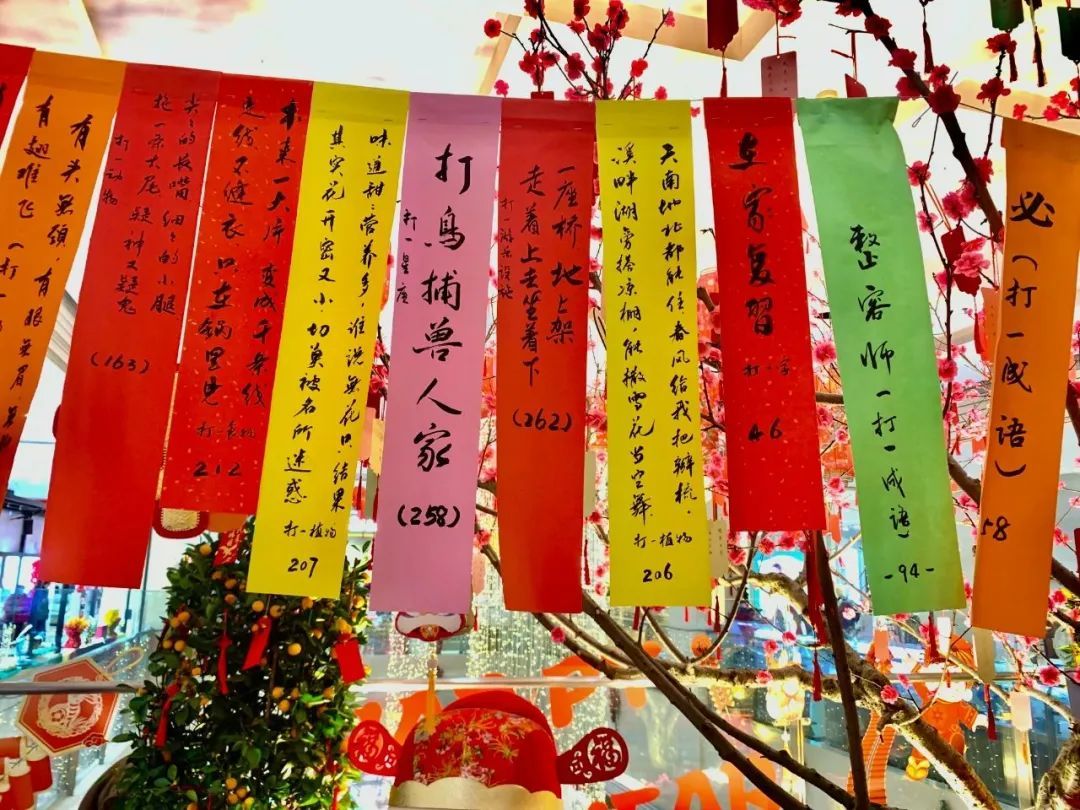 有头無颈,有眼無眉
有翅难飞(打一
尖尖的长嘴,细细的小腿
拖一条大尾,疑神又疑鬼
打一动物
(163)
本来一大片 变成千条线
线又缝衣 只在锅里见
打一食物
212
味道甜甜营养多,谁说無花只结果
其实花开密又小,切莫被名所迷惑
打一植物
207
打鸟捕兽人家
打一星座
(258)
一座桥 地上架
走着上去坐着下
打一游乐设施
(262)
天南地北都能住,春风给我把辫梳,
溪畔湖旁搭凉棚,能撒雪花当空舞
打一植物
206
在家复習
打一字
46
整容师一打一成语)
-94-
必(打一成语)
58
福
福